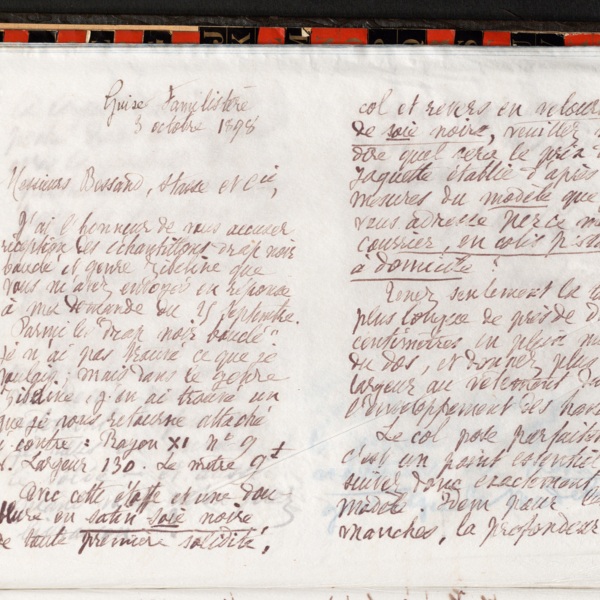 Guise Familistère
3 octobre 1898
Messieurs Bessand, Stasse et Cie,
J'ai l'honneur de vous accuser
réception des échantillons drap noir
bouclé et genre zibeline que
vous m'avez envoyés en réponse
à ma demande du 25 septembre.
Parmi les "drap noir bouclé"
je n'ai pas trouvé ce que je
voulais; mais dans le genre
zibeline, j'en ai trouvé un
que je vous retourne attaché
ci-contre: Rayon XI N° 9
Largeur 130. Le mètre 9f
Avec cette étoffe et une dou-
blure en satin soie noire
de toute première solidité,
col et revers en velours
de soie noire, veuillez
dire quel sera le prix d
jaquette établie d'après
mesures du modèle que
vous adresse par ce m
courrier, en colis posta
à domicile?
Tenez seulement la
plus longue de près de
centimètres en plus
du dos, et donnez plus
largeur au vêtement
l'développement des han
Le col pose parfaite
c'est un point essentiel
suivez donc exactement
modèle. Idem pour le
manches, la profondeur